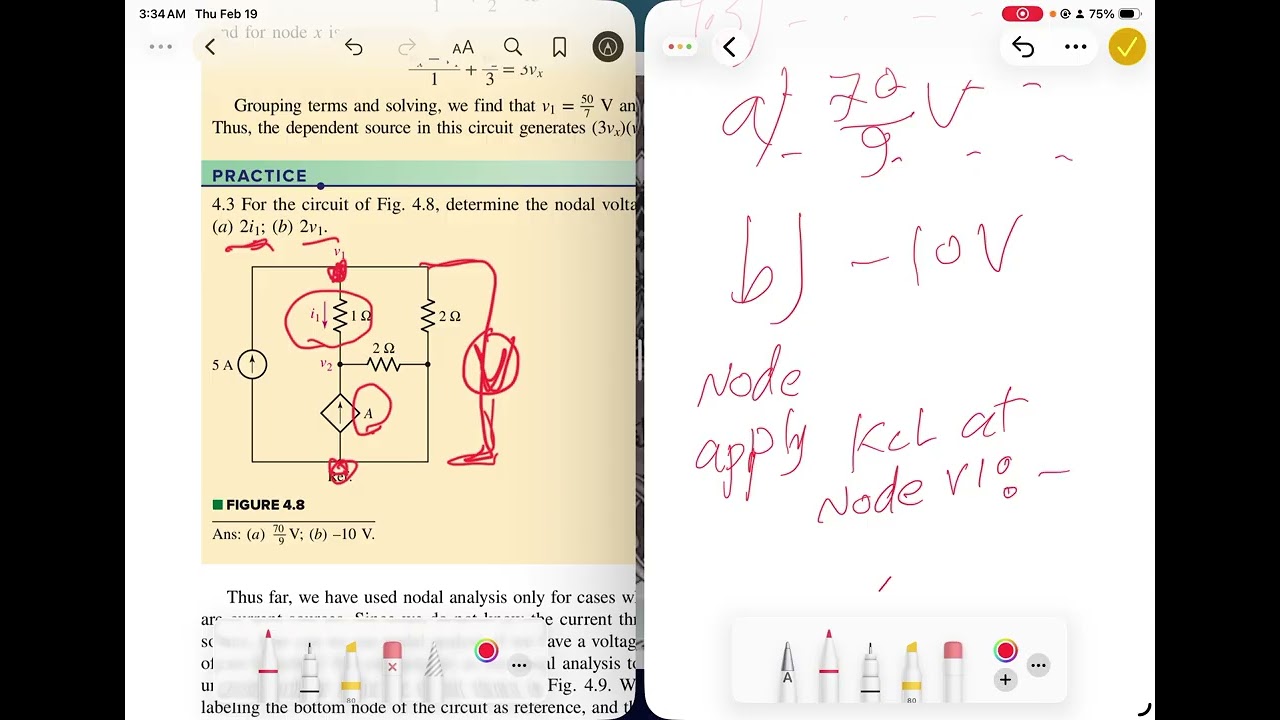 3:34 AM Thu Feb 19
75%
1 2
nd for node x is
AA
1 + 3 = 3vₓ
Grouping terms and solving, we find that v₁ = 50/7 V an
Thus, the dependent source in this circuit generates (3vₓ)(v
PRACTICE
4.3 For the circuit of Fig. 4.8, determine the nodal volta
(a) 2i₁; (b) 2v₁.
v₁
i₁ 1 Ω
2 Ω
2 Ω
5 A
v₂
A
Ref.
FIGURE 4.8
Ans: (a) 70/9 V; (b) –10 V.
Thus far, we have used nodal analysis only for cases w
the current thr
ave a voltag
of
l analysis to
un
Fig. 4.9. W
labeling the bottom node of the circuit as reference, and t
80
a) 70/9 V
b) -10V
Node
apply KCL at
Node V1:-
A
80